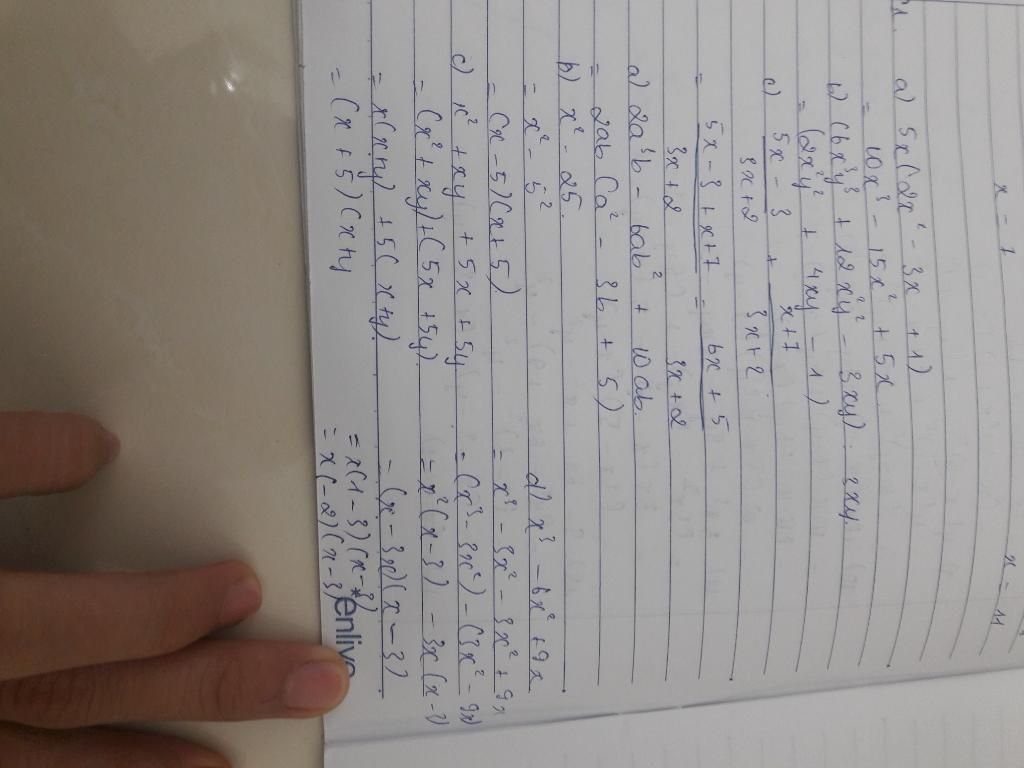 x = 7
x = 11
1.
a) 5x(2x² - 3x + 1)
= 10x³ - 15x² + 5x
b) (6x³y³ + 12x²y² - 3xy) : 3xy
= (2x²y² + 4xy - 1)
c) 5x - 3 / 3x + 2 + x + 7 / 3x + 2
= 5x - 3 + x + 7 / 3x + 2 = 6x + 5 / 3x + 2
a) 2a³b - 6ab² + 10ab
= 2ab (a² - 3b + 5)
b) x² - 25
= x² - 5²
= (x - 5)(x + 5)
c) x² + xy + 5x + 5y
= (x² + xy) + (5x + 5y)
= x(x+y) + 5(x+y)
= (x + 5)(x+y
d) x³ - 6x² + 9x
= x³ - 3x² - 3x² + 9x
= (x³ - 3x²) - (3x² - 9x)
= x²(x - 3) - 3x(x - 3)
= (x - 3x)(x - 3)
= x(1 - 3)(x - 3)
= x(-2)(x - 3)
enlive